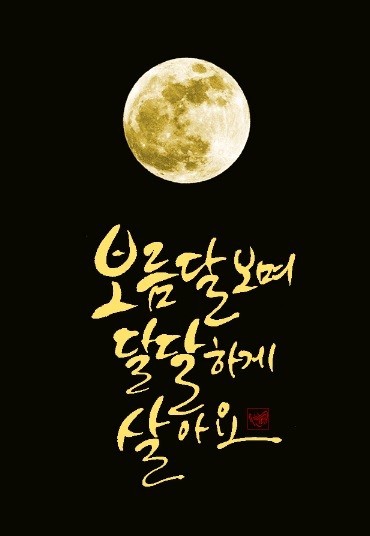 보름달 보며
달달하게
살아요